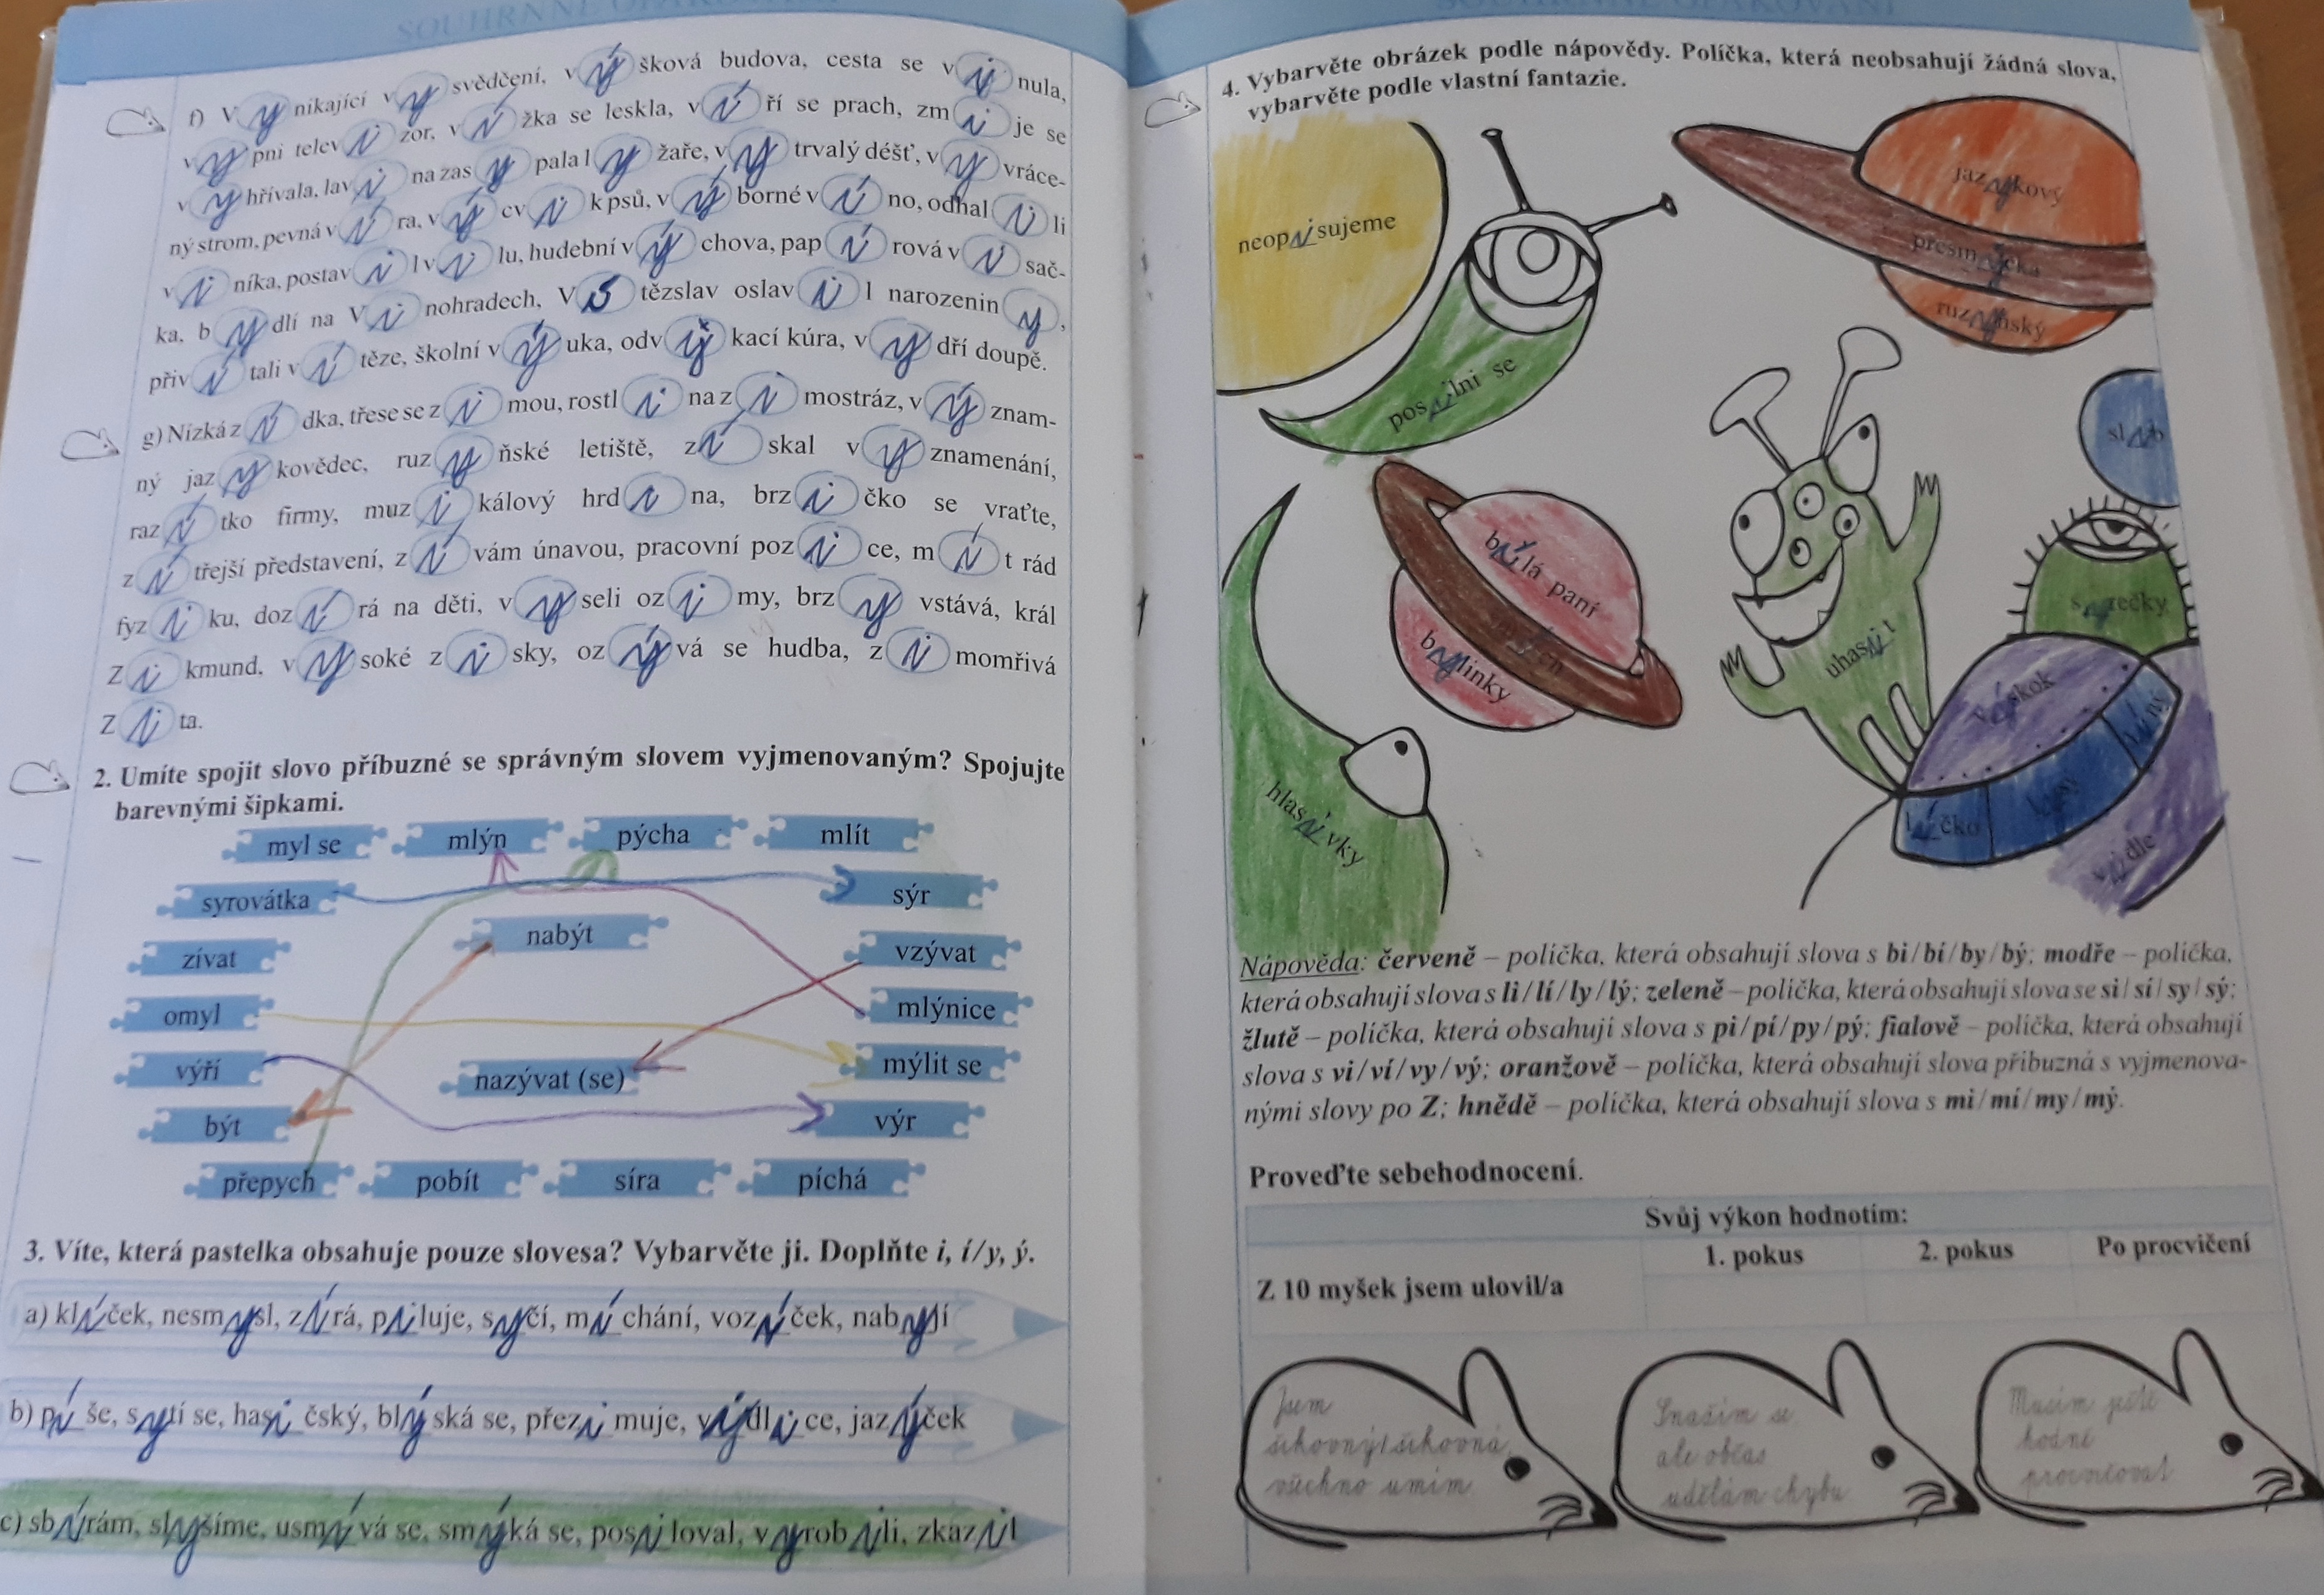 SOUHRNNÉ OPAKOVÁNÍ
f) Vynikající vysvědčení, výšková budova, cesta se vinula,
vypni televizor, vížka se leskla, víří se prach, zmije se
vyhřívala, lavina zasypala lyžaře, vytrvalý déšť, vyvráce-
ný strom, pevná víra, výcvik psů, výborné víno, odhalili
viníka, postavil vilu, hudební výchova, papírová visač-
ka, bydlí na Vinohradech, Vítězslav oslavil narozeniny,
přivítali vítěze, školní výuka, odvykací kúra, vydří doupě.
g) Nízká zídka, třese se zimou, rostlina zimostráz, význam-
ný jazykovědec, ruzyňské letiště, získal vyznamenání,
razítko firmy, muzikálový hrdina, brzičko se vraťte,
zítřejší představení, zívám únavou, pracovní pozice, mít rád
fyziku, dozírá na děti, vyseli ozimy, brzy vstává, král
Zikmund, vysoké zisky, ozývá se hudba, zimomřivá
Zita.
2. Umíte spojit slovo příbuzné se správným slovem vyjmenovaným? Spojujte
barevnými šipkami.
myl se mlýn pýcha mlít
syrovátka sýr
nabýt
zívat vzývat
omyl mlýnice
výří nazývat (se) mýlit se
být výr
přepych pobít síra píchá
3. Víte, která pastelka obsahuje pouze slovesa? Vybarvěte ji. Doplňte i, í/y, ý.
a) klíček, nesmysl, zírá, piluje, syčí, míchání, vozíček, nabyljí
b) píše, sytí se, hasičský, blýská se, přezimuje, výdlice, jazýček
c) sbírám, slyšíme, usmívá se, smýká se, posiloval, vyrobili, zkazil
SOUHRNNÉ OPAKOVÁNÍ
4. Vybarvěte obrázek podle nápovědy. Políčka, která neobsahují žádná slova,
vybarvěte podle vlastní fantazie.
neopisujeme
jazykový
přesmyčka
ruzyňský
posilni se
slib
bílá paní
bylinky
syrečky
uhasit
výskok
líný
líčko
vidle
hlasivky
Nápověda: červeně – políčka, která obsahují slova s bi/bí/by/bý; modře – políčka,
která obsahují slova s li/lí/ly/lý; zeleně – políčka, která obsahují slova se si/sí/sy/sý;
žlutě – políčka, která obsahují slova s pi/pí/py/pý; fialově – políčka, která obsahují
slova s vi/ví/vy/vý; oranžově – políčka, která obsahují slova příbuzná s vyjmenova-
nými slovy po Z; hnědě – políčka, která obsahují slova s mi/mí/my/mý.
Proveďte sebehodnocení.
Svůj výkon hodnotím:
1. pokus 2. pokus Po procvičení
Z 10 myšek jsem ulovil/a
Jsem
šikovný/šikovná,
všechno umím
Snažím se,
ale občas
udělám chybu
Musím ještě
hodně
procvičovat